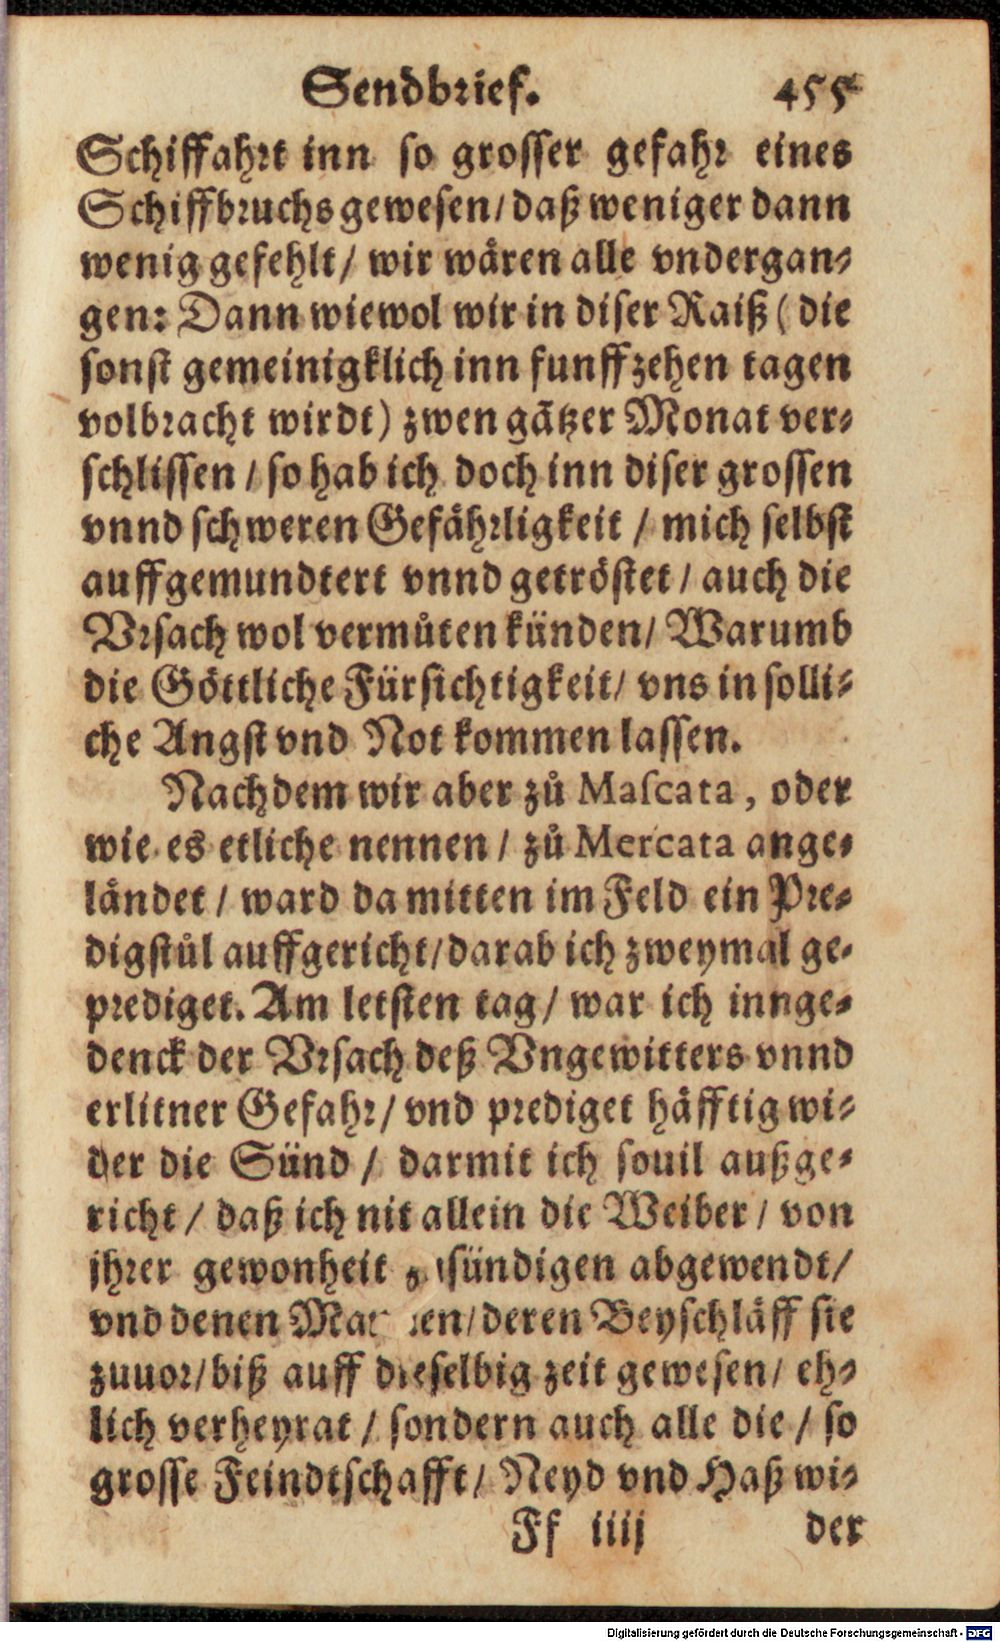 Sendbrief. 455
Schiffahrt inn so grosser gefahr eines
Schiffbruchs gewesen/ daß weniger dann
wenig gefehlt/ wir wären alle vndergan-
gen: Dann wiewol wir in diser Raiß (die
sonst gemeinigklich inn funffzehen tagen
volbracht wirdt) zwen gātzer Monat ver-
schlissen/ so hab ich doch inn diser grossen
vnnd schweren Gefährligkeit/ mich selbst
auffgemundtert vnnd getröstet/ auch die
Vrsach wol vermůten künden/ Warumb
die Göttliche Fürsichtigkeit/ vns in solli-
che Angst vnd Not kommen lassen.
Nachdem wir aber zů Mascata, oder
wie es etliche nennen/ zů Mercata ange-
ländet/ ward da mitten im Feld ein Pre-
digstůl auffgericht/ darab ich zweymal ge-
prediget. Am letsten tag/ war ich innge-
denck der Vrsach deß Vngewitters vnnd
erlitner Gefahr/ vnd prediget häfftig wi-
der die Sünd/ darmit ich souil außge-
richt/ daß ich nit allein die Weiber/ von
jhrer gewonheit sündigen abgewendt/
vnd denen /deren Beyschläff sie
zuuor/ biß auff dieselbig zeit gewesen/ eh-
lich verheyrat/ sondern auch alle die/ so
grosse Feindtschafft/ Neyd vnd Haß wi-
Ff iiij der
Digitalisierung gefördert durch die Deutsche Forschungsgemeinschaft - DFG